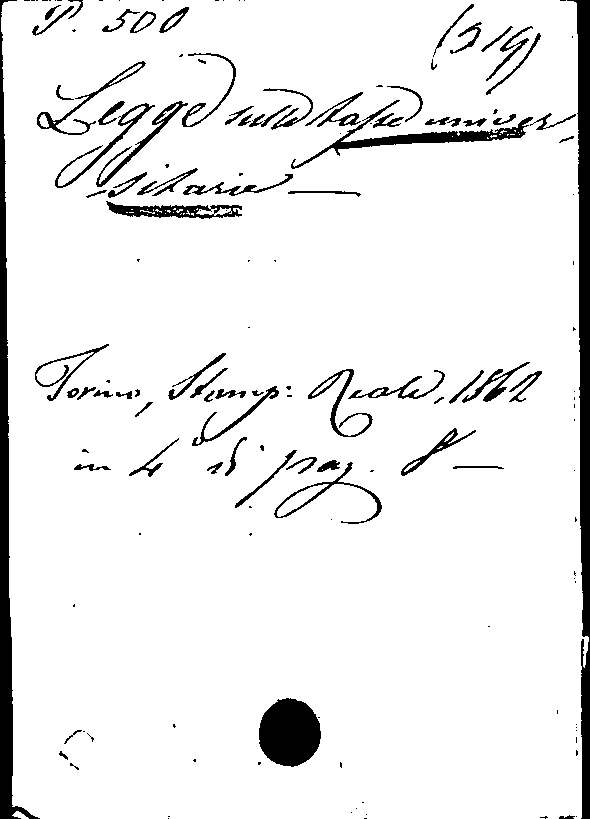 P. 500 (319)
Legge sulle tasse univer-
sitarie —
Torino, Stamp: Reale, 1862
in 4° di pag. 8 —